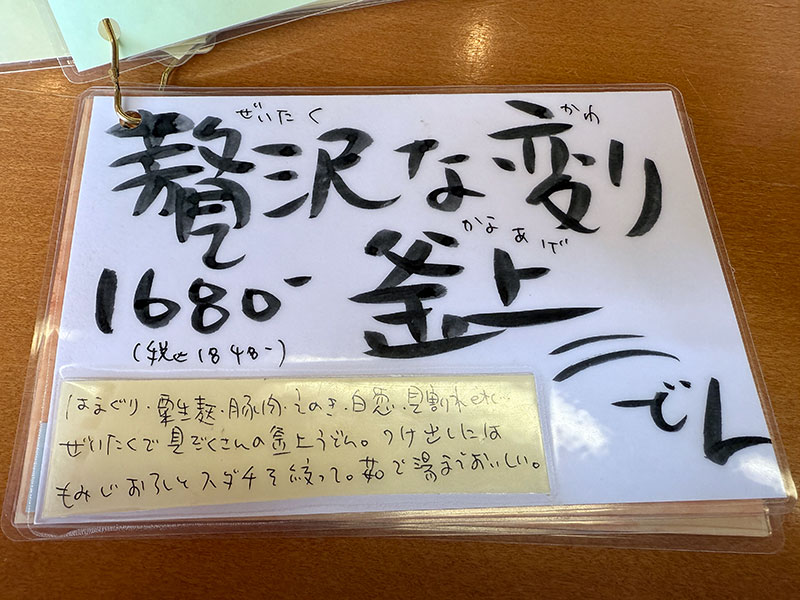 ぜいたく かわ
贅沢な変り
かまあげ
釜上
うどん
1680-
(税込1848-)
はまぐり・粟生麸・豚肉・えのき・白葱・貝割れetc…
ぜいたくで具だくさんの釜上うどん。つけ出しには
もみじおろしとスダチを絞って。茹で湯までおいしい。